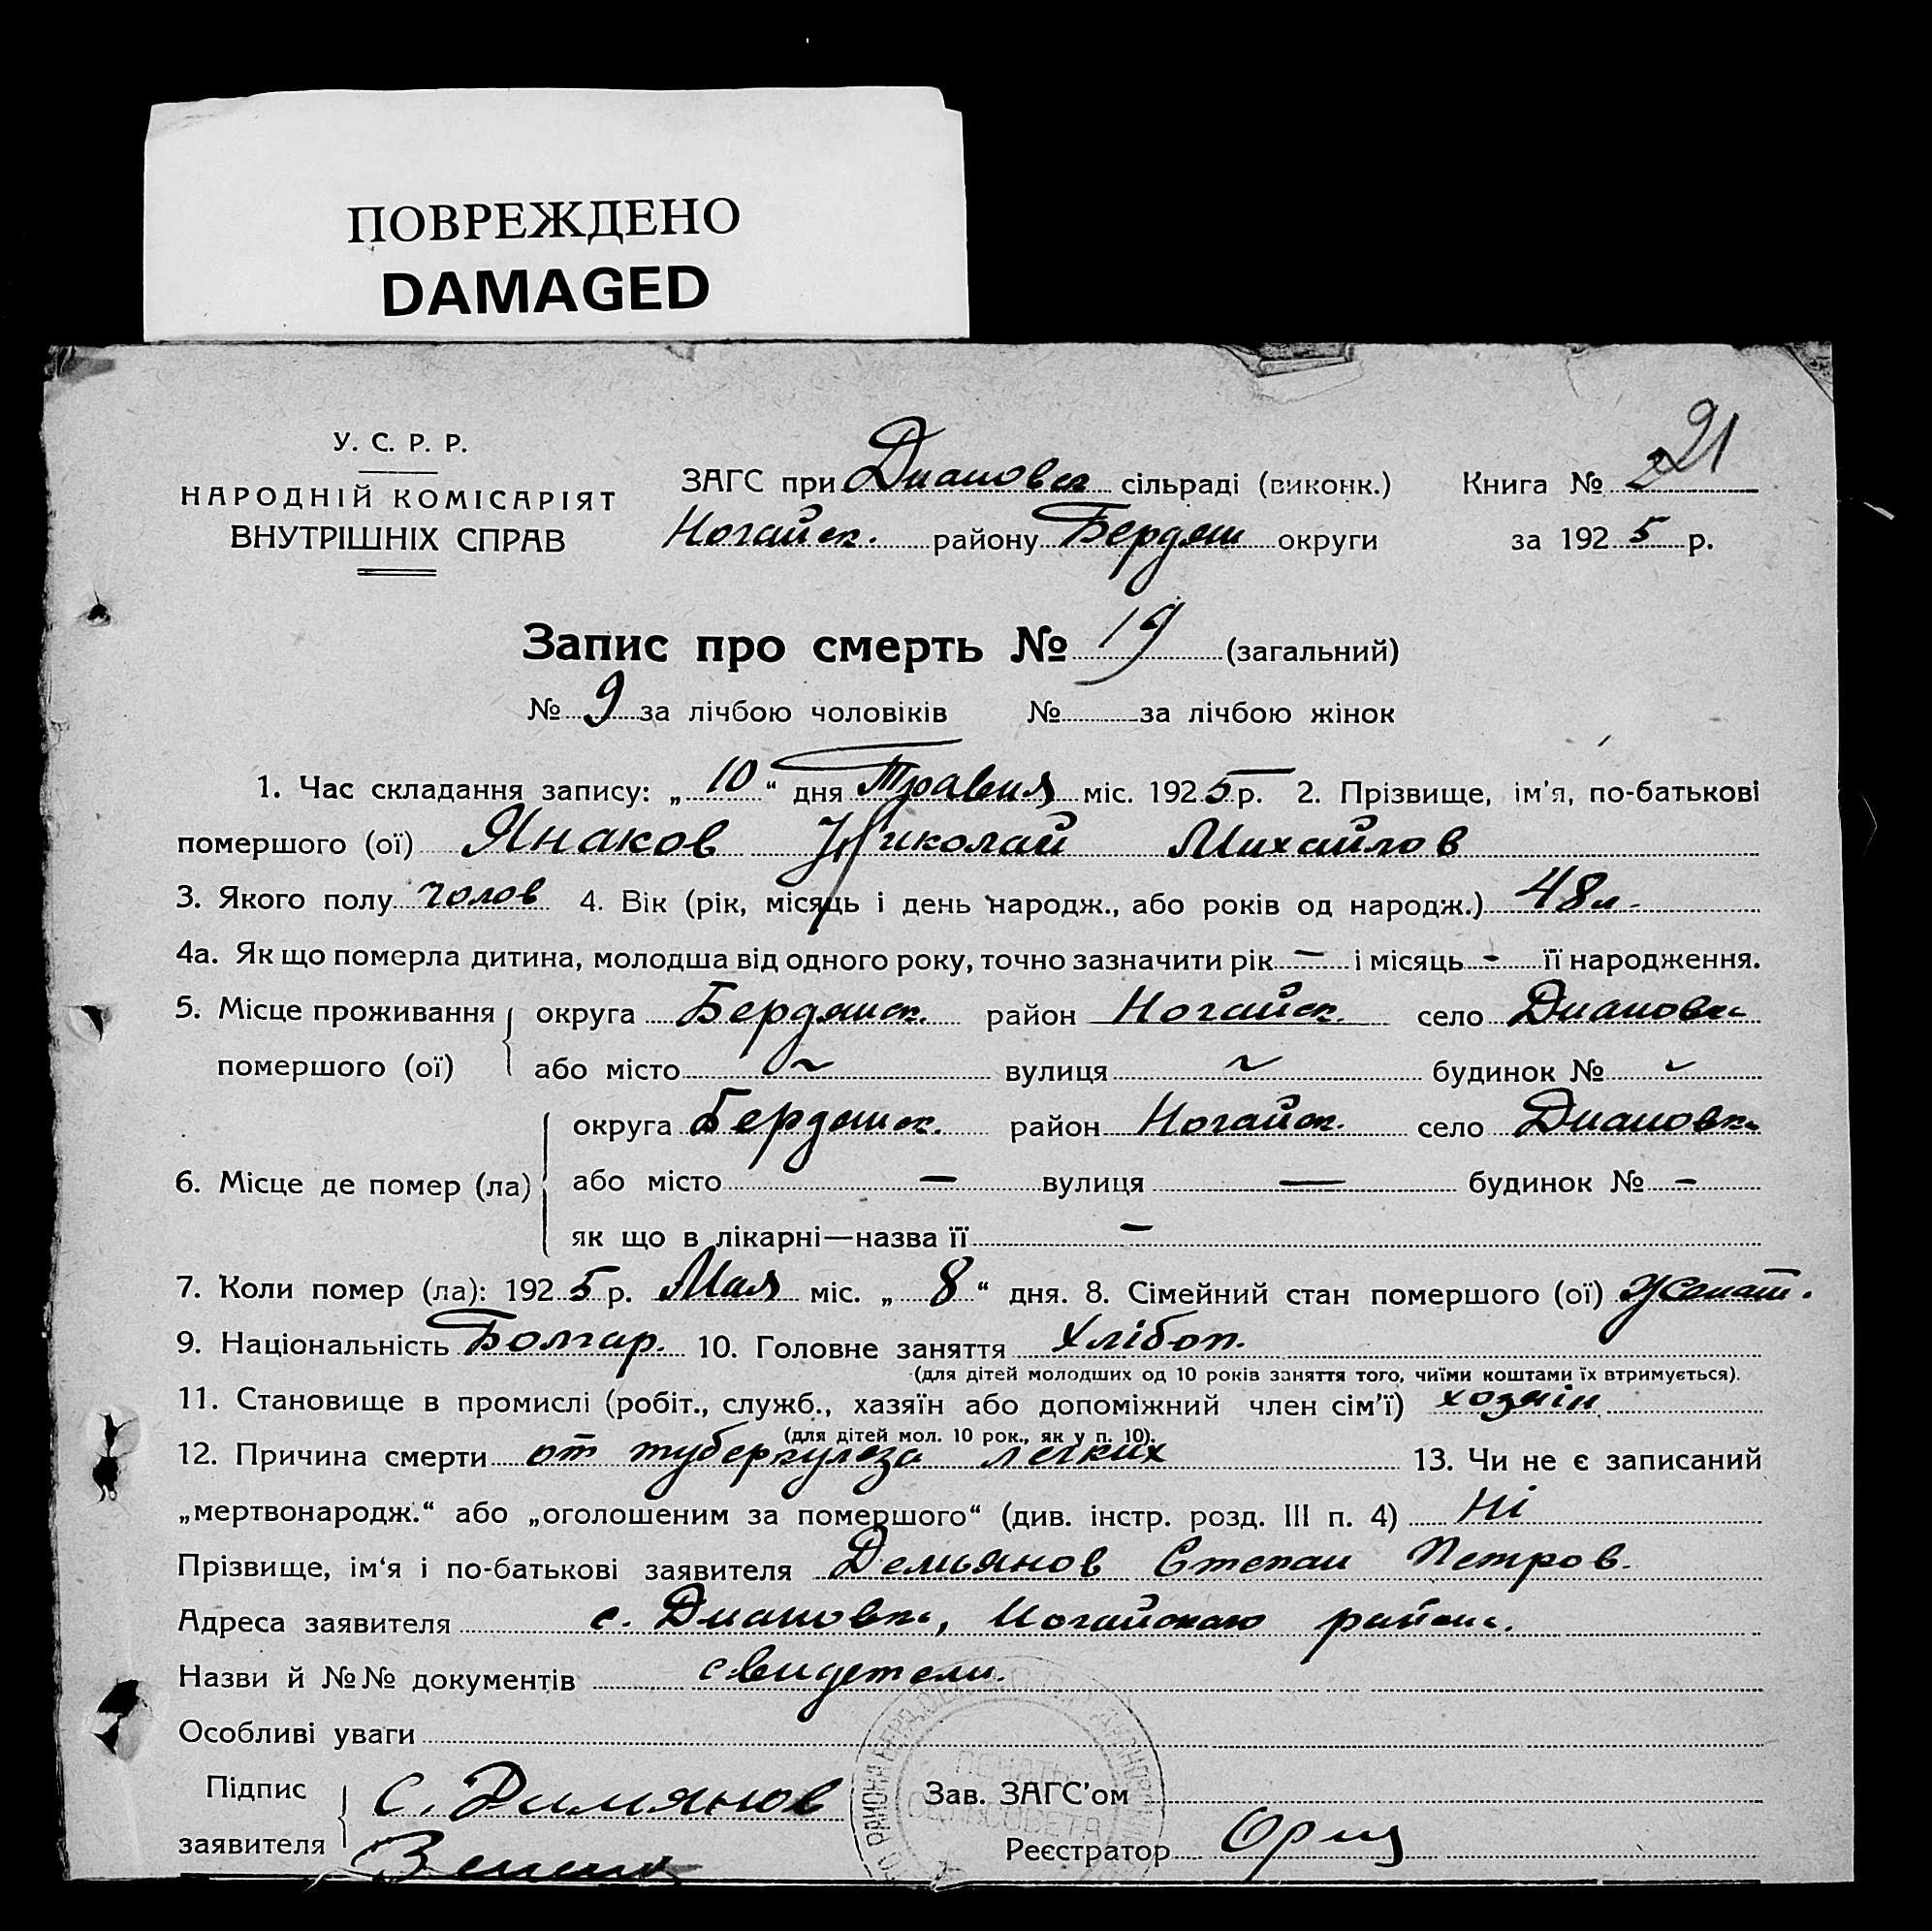 ПОВРЕЖДЕНО
DAMAGED
У. С. Р. Р.
НАРОДНІЙ КОМІСАРІЯТ
ВНУТРІШНІХ СПРАВ
ЗАГС при Диановск сільраді (виконк.)
Ногайск. району Бердян округи
Книга № 21
за 1925 р.
Запис про смерть № 19 (загальний)
№ 9 за лічбою чоловіків № за лічбою жінок
1. Час складання запису: „10“ дня Травня міс. 1925 р. 2. Прізвище, ім'я, по-батькові
помершого (ої) Янаков Николай Михайлов
3. Якого полу чолов 4. Вік (рік, місяць і день народж., або років од народж.) 48 л.
4а. Як що померла дитина, молодша від одного року, точно зазначити рік — і місяць - її народження.
5. Місце проживання помершого (ої) округа Бердянск. район Ногайск. село Диановка
або місто ~ вулиця ~ будинок № ~
6. Місце де помер (ла) округа Бердянск. район Ногайск. село Диановка
або місто — вулиця — будинок № -
як що в лікарні—назва її —
7. Коли помер (ла): 1925 р. Мая міс. „8“ дня. 8. Сімейний стан помершого (ої) Женат.
9. Національність Болгар. 10. Головне заняття Хлібоп.
(для дітей молодших од 10 років заняття того, чиїми коштами їх втримується).
11. Становище в промислі (робіт., служб., хазяїн або допоміжний член сім'ї) хозяін
(для дітей мол. 10 рок., як у п. 10).
12. Причина смерти от туберкулеза легких 13. Чи не є записаний
„мертвонародж.“ або „оголошеним за помершого“ (див. інстр. розд. III п. 4) Ні
Прізвище, ім'я і по-батькові заявителя Демьянов Степан Петров.
Адреса заявителя с. Диановка, Ногайского района.
Назви й №№ документів свидетели.
Особливі уваги
Підпис заявителя С. Димянов
Зав. ЗАГС'ом
Реєстратор
ПЕЧАТЬ
СЕЛЬСОВЕТА